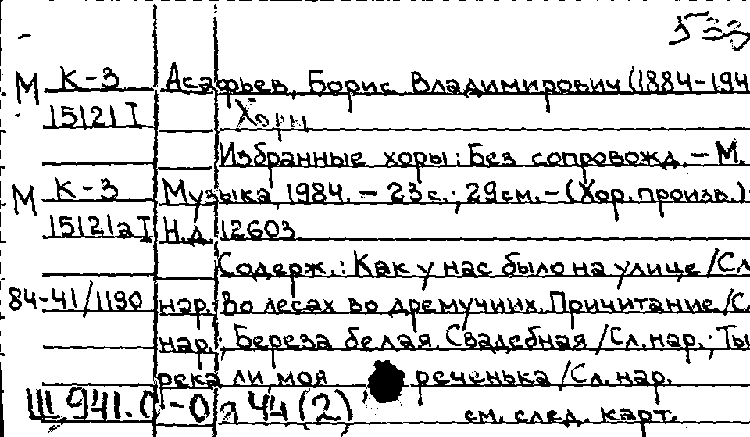 533
М К-3 Асафьев, Борис Владимирович (1884-194
15121 I Хоры
Избранные хоры: Без сопровожд. – М.
М К-3 Музыка, 1984. – 23 с.; 29 см. – (Хор. произв.)
15121а I Н.д. 12603
Содерж.: Как у нас было на улице /Сл
84-41/1190 нар. Во лесах во дремучиих. Причитание /С
нар., Береза белая. Свадебная /Сл. нар.; Ты
река ли моя реченька /Сл. нар.
Щ 941.0 -0 я 44 (2) см. след. карт.